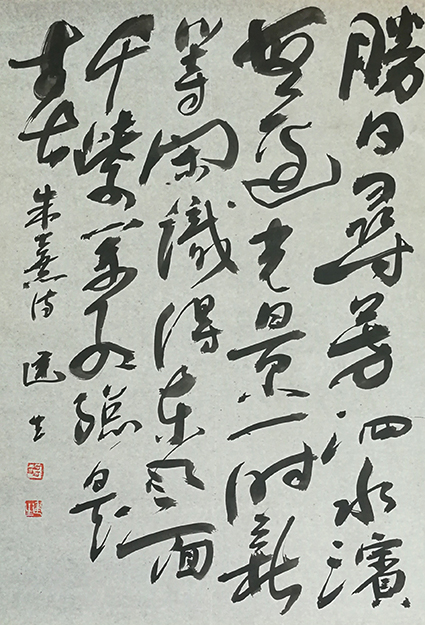 勝日尋芳泗水濱
無邊光景一時新
等閑識得東風面
千紫萬紅總是
春 朱熹詩